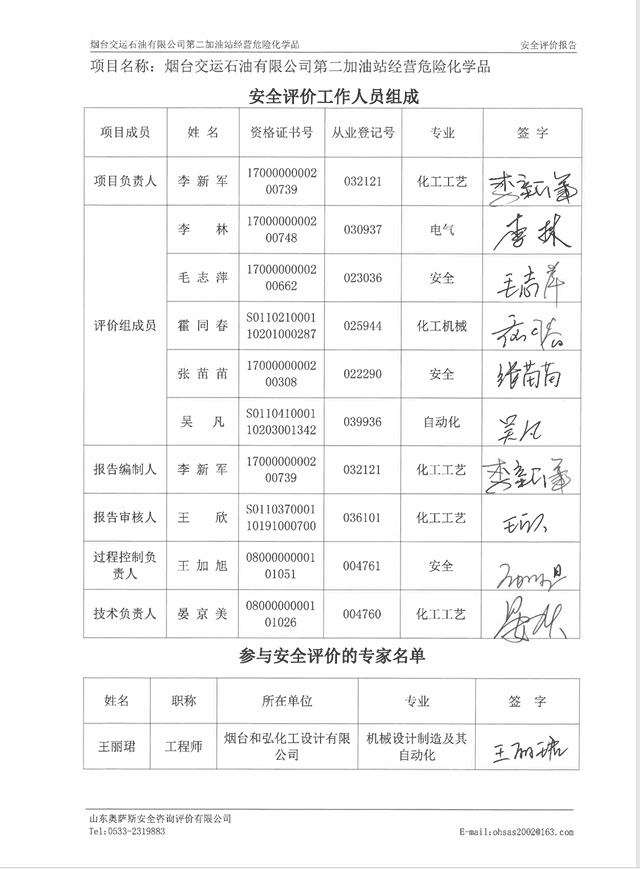 烟台交运石油有限公司第二加油站经营危险化学品 安全评价报告
项目名称：烟台交运石油有限公司第二加油站经营危险化学品
安全评价工作人员组成
项目成员 姓 名 资格证书号 从业登记号 专业 签 字
项目负责人 李 新 军 17000000002 00739 032121 化工工艺 李新军
评价组成员
李 林 17000000002 00748 030937 电气 李林
毛 志 萍 17000000002 00662 023036 安全 毛志萍
霍 同 春 S0110210001 10201000287 025944 化工机械
张 苗 苗 17000000002 00308 022290 安全 张苗苗
吴 凡 S0110410001 10203001342 039936 自动化 吴凡
报告编制人 李 新 军 17000000002 00739 032121 化工工艺 李新军
报告审核人 王 欣 S0110370001 10191000700 036101 化工工艺 王欣
过程控制负责人 王 加 旭 08000000001 01051 004761 安全
技术负责人 晏 京 美 08000000001 01026 004760 化工工艺
参与安全评价的专家名单
姓名 职称 所在单位 专业 签 字
王丽珺 工程师 烟台和弘化工设计有限公司 机械设计制造及其自动化 王丽珺
山东奥萨斯安全咨询评价有限公司
Tel:0533-2319883 E-mail:ohsas2002@163.com